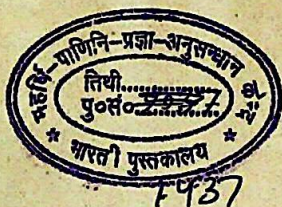 महर्षि-पाणिनि-प्रज्ञा-अनुसन्धान
तिथी............
पु०सं०
* भारती पुस्तकालय *